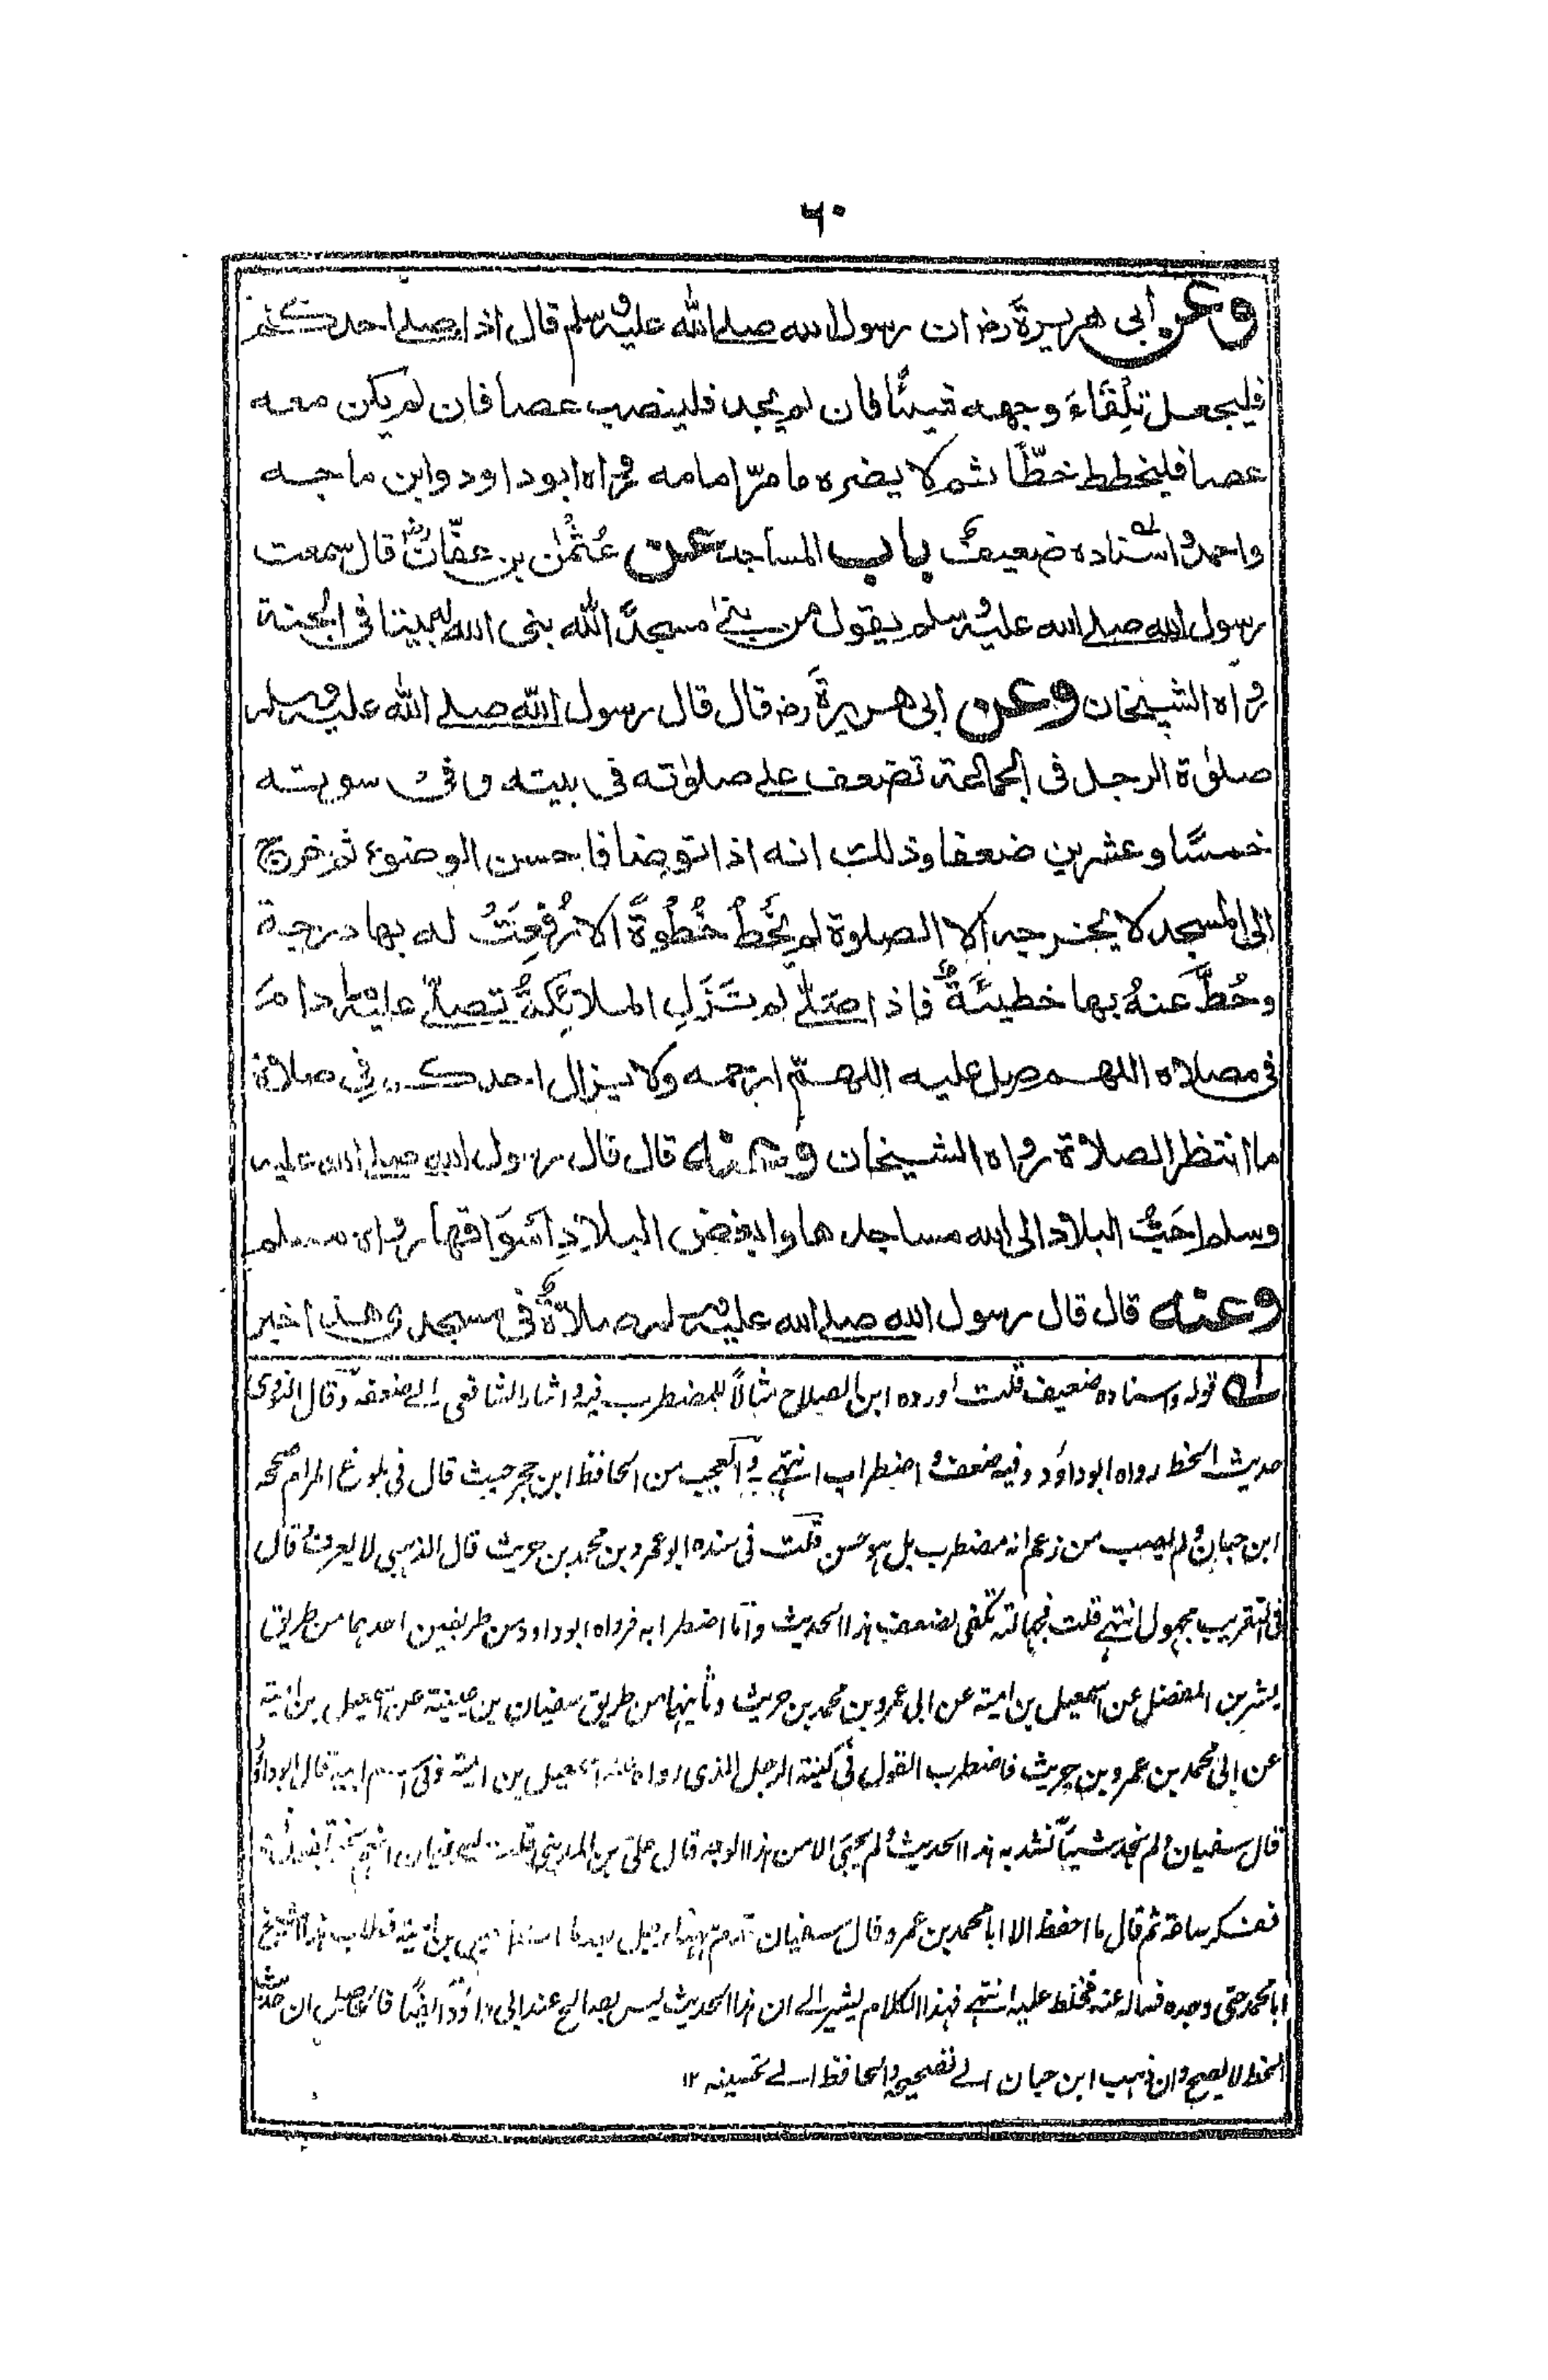 ٦٠
وعن أبي هريرة رض ان رسول الله صلے الله عليه وسلم قال اذا صلے احدكم
فليجعل تِلقَاءَ وجهه شيئًا فان لم يجد فلينصب عصا فان لم يكن معه
عصا فليخطط خطًّا ثم لا يضره ما مرّ امامه رواه ابو داود وابن ماجه
واحمد واسناده ضعيف باب المساجد عن عُثمٰن بن عفّان رض قال سمعت
رسول الله صلے الله عليه وسلم يقول من بنىٰ مسجدًا لله بنى الله له بيتا فى الجنة
رواه الشيخان وعن ابى هريرةَ رض قال قال رسول الله صلے الله عليه وسلم
صلوٰة الرجل فى الجماعة تضعف علے صلوٰته فى بيته وفى سوقه
خمسًا وعشرين ضعفا وذلك انه اذا توضا فاحسن الوضوء ثم خرج
الى المسجد لا يخرجه الا الصلوة لم يَخْطُ خُطْوةً الا رُفِعَتْ له بها درجة
وحُطَّ عنهُ بها خطيئَةٌ فاذا صَلّٰے لم تَزَلِ الملائِكةُ تصلّے عليه ما دامَ
فى مصلاه اللهم صل عليه اللهمّ ارحمه ولا يزال احدكم فى صلاة
ما انتظر الصلاة رواه الشيخان وعنه قال قال رسول الله صلے الله عليه
وسلم احَبُّ البلاد الى الله مساجدها وابغض البلادِ اَسْوَاقها رواه مسلم
وعنه قال قال رسول الله صلے الله عليه وسلم صلاةٌ فى مسجدى هذا خير
لـه قوله واسناده ضعيف قلت اورده ابن الصلاح مثالًا للمضطرب فيه واشار الشافعى الے ضعفه وقال النووى
حديث الخط رواه ابو داؤد وفيه ضعف واضطراب انتهے والعجب من الحافظ ابن حجر حيث قال فى بلوغ المرام صححه
ابن حبان ولم يصب من زعم انه مضطرب بل هو حسن قلت فى سنده ابو عمرو بن محمد بن حريث قال الذهبى لا يعرف وقال
فى التقريب مجهول انتهے قلت فجهالته تكفى لضعف هذا الحديث واما اضطرابه فرواه ابو داود من طريقين احدهما من طريق
بشر بن المفضل عن اسمعيل بن امية عن ابى عمرو بن محمد بن حريث وثانيهما من طريق سفيان بن عيينة عن اسمعيل بن امية
عن ابى محمد بن عمرو بن حريث فاضطرب القول فى كنية الرجل الذى رواه عنه اسمعيل بن امية وفى اسم ابيه قال ابو داؤد
قال سفيان ولم نجد شيئًا نشد به هذا الحديث ولم يجئ الا من هذا الوجه قال على بن المدينى قلت لسفيان انهم يختلفون فيه
فتفكر ساعة ثم قال ما احفظ الا ابا محمد بن عمرو قال سفيان قدم ههنا رجل بعد ما مات اسمعيل بن امية فطلب هذا الشيخ
ابا محمد حتى وجده فساله عنه فخلط عليه انتهے فهذا الكلام يشير الے ان هذا الحديث ليس بصالح عند ابى داؤد ايضًا فالحاصل ان حديث
الخط لا يصح وان ذهب ابن حبان الے تصحيحه والحافظ الے تحسينه ١٢